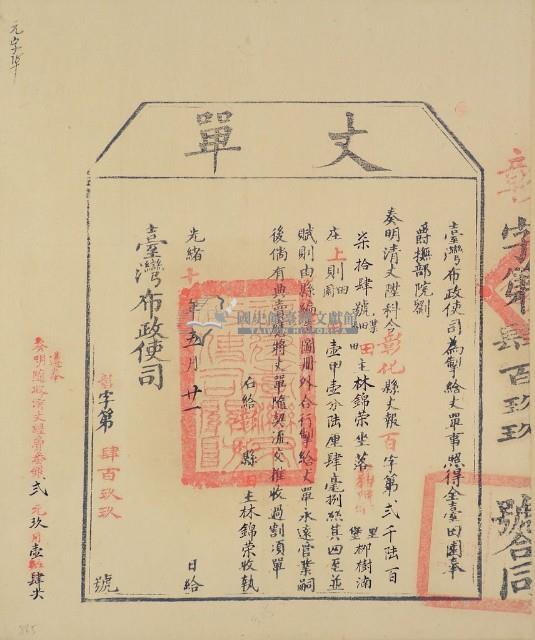 丈單
臺灣布政使司為掣給丈單事照得全臺田園奉
爵撫部院劉
奏明清丈陞科今彰化縣丈報百字第貳千陸百
柒拾肆號細號田主林錦榮坐落里堡柳樹湳
庄上則田園壹甲壹分陸厘肆毫捌絲其四至並
賦則由縣編造圖冊外合行掣給丈單永遠管業嗣
後倘有典賣將丈單隨契流交推收過割須單
右給縣主林錦榮收執
光緒十年五月廿一日給
臺灣布政使司
彰字第肆百玖玖號
彰字第肆百玖玖號合同
遵奉
奏明隨收清丈經費番銀貳元玖角壹肆尖
國史館臺灣文獻館
TAIWAN HISTORICA